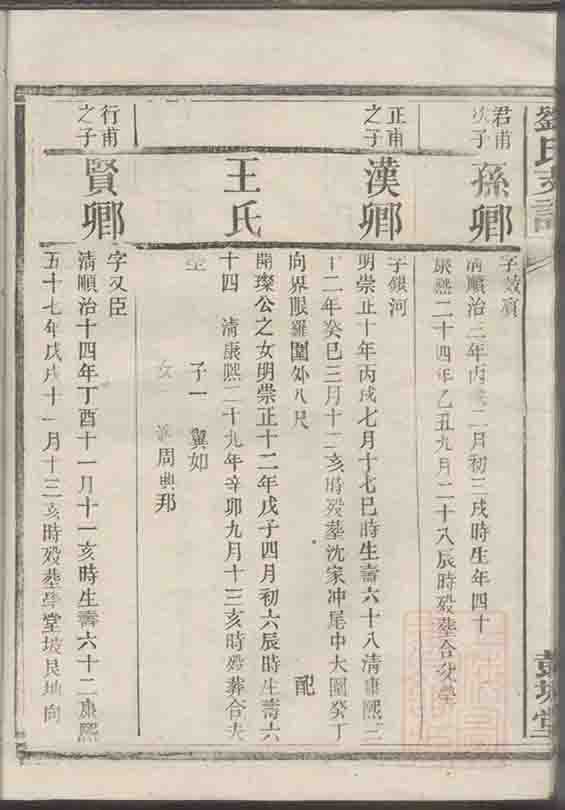 劉氏支譜
彭城堂
君甫
次子
孫卿
字效賓
清順治三年丙戌二月初三戌時生年四十
康熙二十四年乙丑九月二十八辰時歿葬合父塋
正甫
之子
漢卿
字銀河
明崇正十年丙戌七月十七巳時生壽六十八清康熙三
十二年癸巳三月十二亥時歿葬沈家冲尾中大圍癸丁
向界眼羅圍外八尺
配
王氏
開璨公之女明崇正十二年戊子四月初六辰時生壽六
十四 清康熙二十九年辛卯九月十三亥時歿葬合夫
塋
子一 翼如
女一 適周典邦
行甫
之子
賢卿
字又臣
清順治十四年丁酉十一月十一亥時生壽六十二康熙
五十七年戊戌十一月十三亥時歿葬學堂坡艮坤向